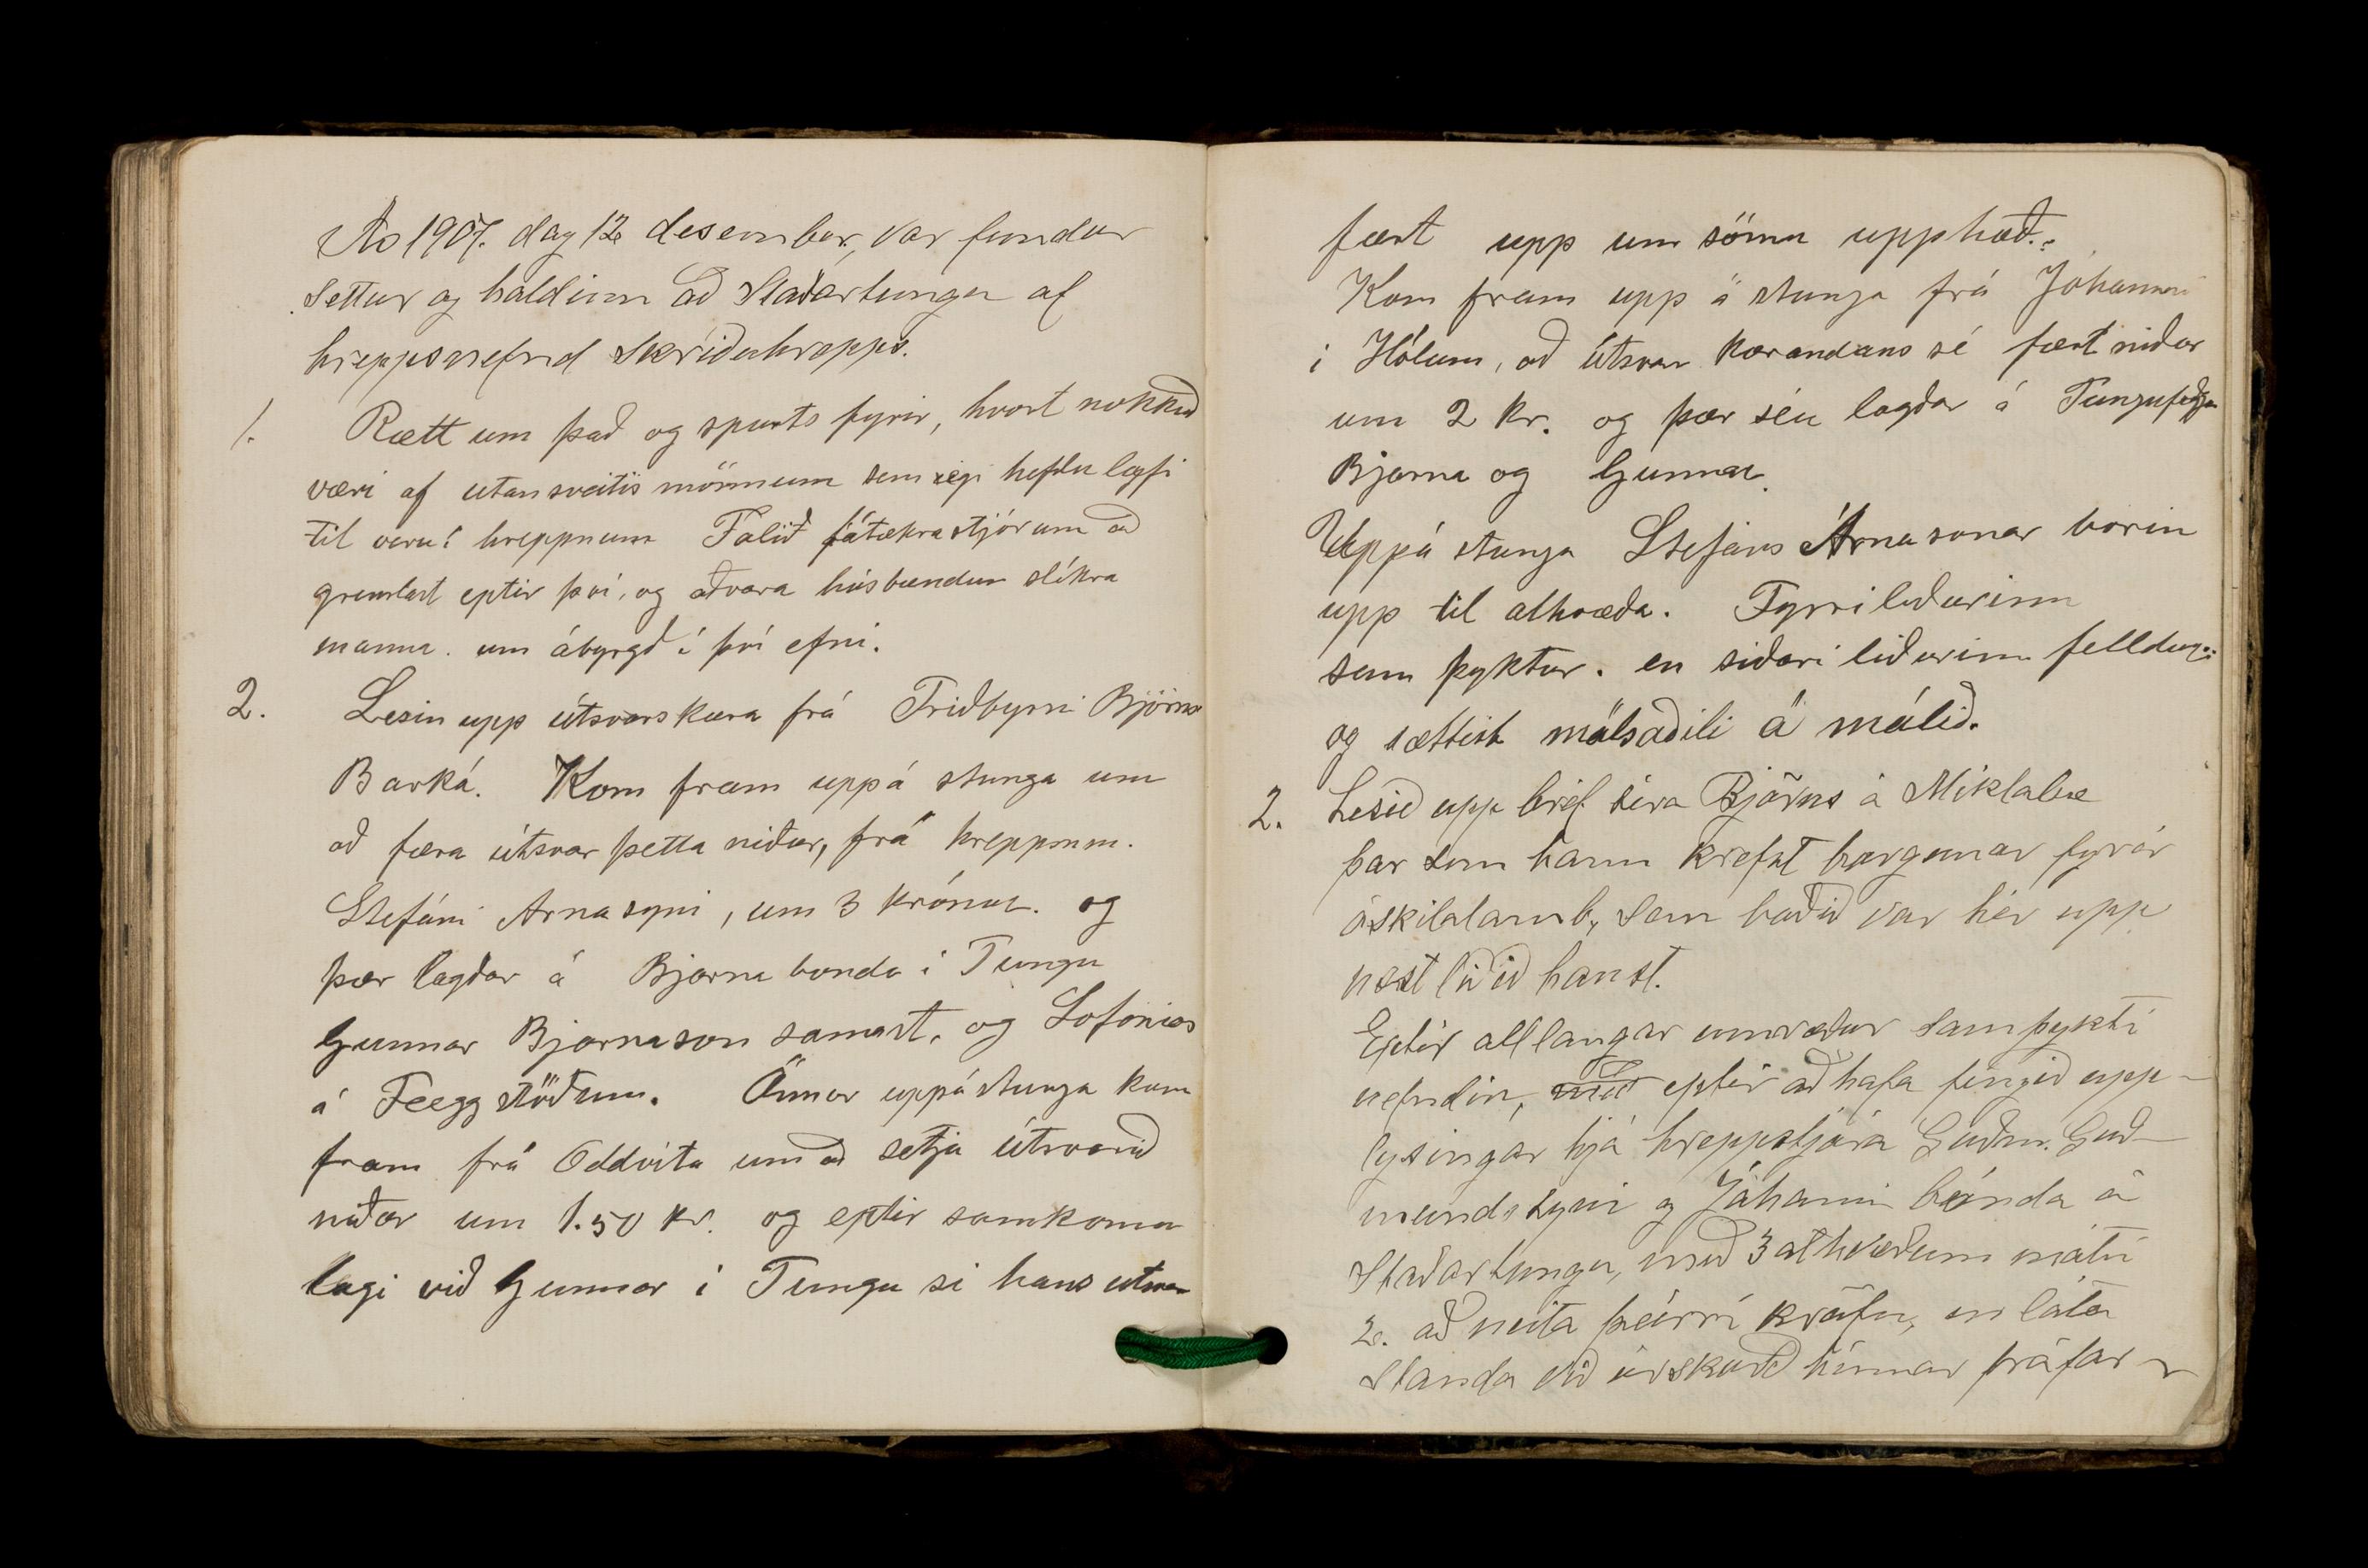 Ár 1907. dag 12 desember, var fundur
settur og haldinn að Staðartungu af
hreppsnefnd Skriðuhrepps.
1. Rætt um það og spurts fyrir, hvort nokkuð
væri af utansveitis mönnum sem eigi hefðu leyfi
til veru í hreppnum Falið fátækrastjórum að
grenslast eptir því, og aðvara húsbændur slíkra
manna. um ábyrgð í því efni.
2. Lesin upp útsvarskæra frá Friðbyrni Björns
Barká. Kom fram uppá stunga um
að færa útsvar þetta niður, frá hreppsnm.
Stefáni Árnasyni, um 3 krónur. og
þær lagðar á Bjarna bonda í Tungu
Gunnar Bjarnason samast. og Sofonias
á Féeggstöðum. Önnur uppástunga kom
fram frá Oddvita um að setja útsvarið
niður um 1.50 kr. og eptir samkomu
lagi við Gunnar í Tungu sé hans utsvar
fært upp um sömu upphæð.
Kom fram upp á stunga frá Jóhanni
í Hólum, að útsvar kærandans sé fært niður
um 2 kr. og þær séu lagðar á Tungufeðga
Bjarna og Gunnar.
Uppá stunga Stefáns Árnasonar borin
upp til atkvæða. Fyrri liðurinn
samþyktur. en síðari liðurinn felldur
og sættist málsaðili á málið.
2. Lesið upp bréf séra Björns á Miklabæ
þar sem hann krefst borgunar fyrir
óskilalamb, sem boðið var hér upp
næst liðið haust.
Eptir all langar umræður samþykti
nefndin, með eptir að hafa fengið upp-
lýsingar hjá hreppstjóra Guðm. Guð-
mundssyni og Jóhanni bónda á
Staðartungu, með 3 atkvæðum móti
2. að neita þeirri kröfu, en láta
standa við úrskurð hinnar fráfar-